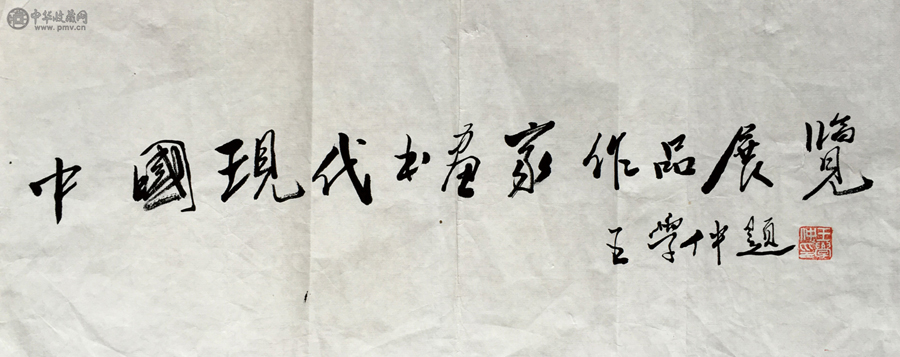 中华收藏网
www.pmv.cn
中國現代书畫家作品展覽
王學仲題
王學仲印